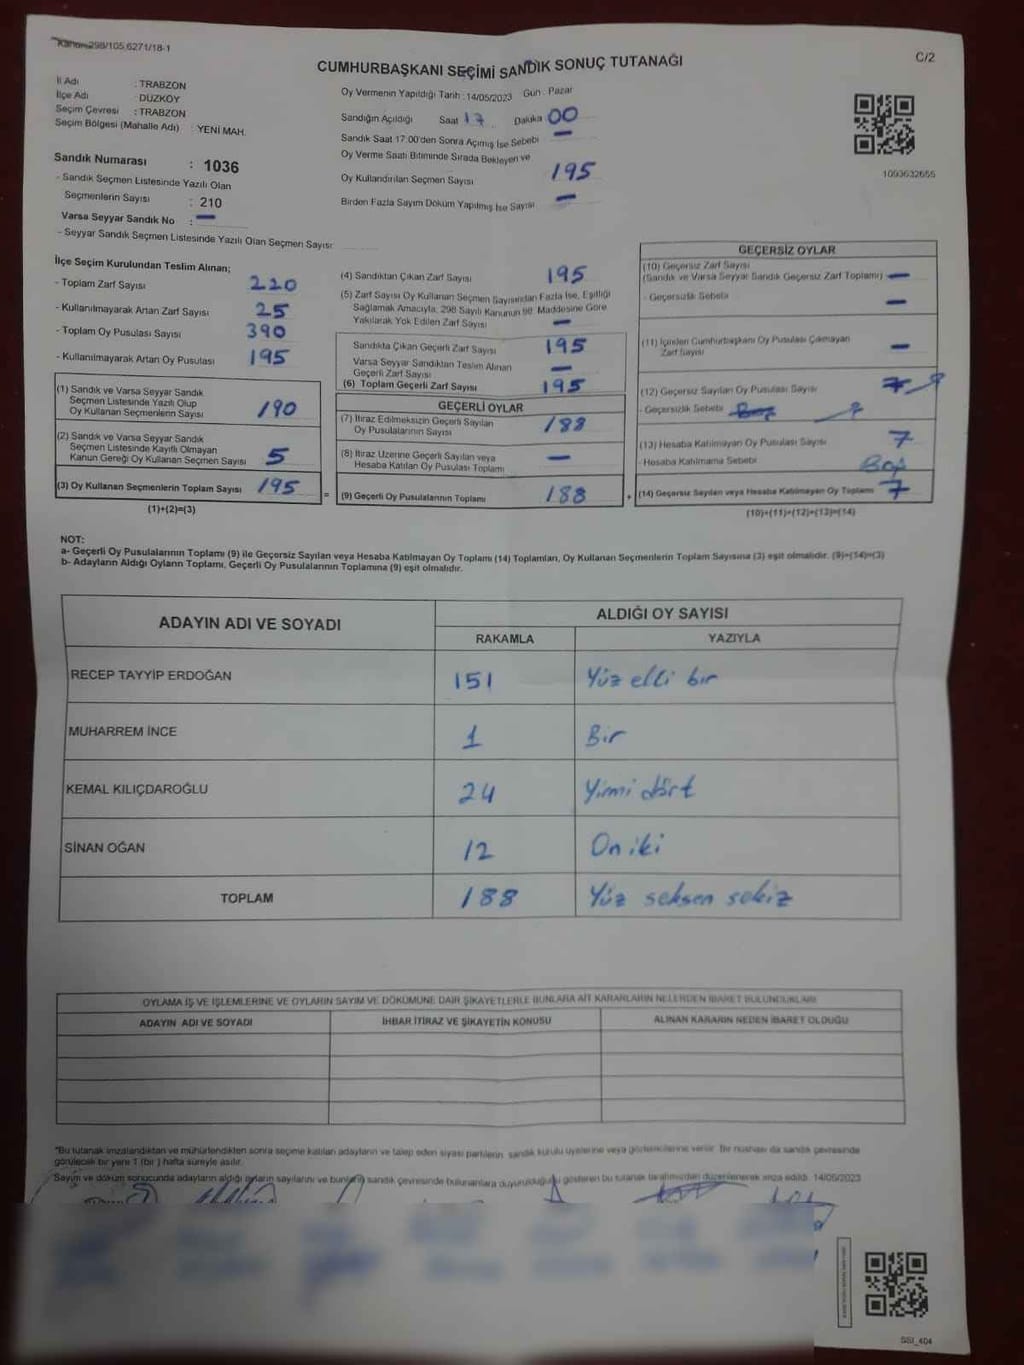 Kanun 298/105,6271/18-1
C/2
CUMHURBAŞKANI SEÇİMİ SANDIK SONUÇ TUTANAĞI
İl Adı : TRABZON
İlçe Adı : DÜZKÖY
Seçim Çevresi : TRABZON
Seçim Bölgesi (Mahalle Adı) : YENİ MAH.
Oy Vermenin Yapıldığı Tarih : 14/05/2023 Gün : Pazar
Sandığın Açıldığı Saat 17 Dakika 00
Sandık Saat 17:00'den Sonra Açılmış İse Sebebi —
Oy Verme Saati Bitiminde Sırada Bekleyen ve
Oy Kullandırılan Seçmen Sayısı 195
Birden Fazla Sayım Döküm Yapılmış İse Sayısı —
1093632655
Sandık Numarası : 1036
- Sandık Seçmen Listesinde Yazılı Olan
Seçmenlerin Sayısı : 210
Varsa Seyyar Sandık No : —
- Seyyar Sandık Seçmen Listesinde Yazılı Olan Seçmen Sayısı:
İlçe Seçim Kurulundan Teslim Alınan;
- Toplam Zarf Sayısı 220
- Kullanılmayarak Artan Zarf Sayısı 25
- Toplam Oy Pusulası Sayısı 390
- Kullanılmayarak Artan Oy Pusulası 195
(1) Sandık ve Varsa Seyyar Sandık
Seçmen Listesinde Yazılı Olup
Oy Kullanan Seçmenlerin Sayısı 190
(2) Sandık ve Varsa Seyyar Sandık
Seçmen Listesinde Kayıtlı Olmayan
Kanun Gereği Oy Kullanan Seçmen Sayısı 5
(3) Oy Kullanan Seçmenlerin Toplam Sayısı 195
(1)+(2)=(3)
(4) Sandıktan Çıkan Zarf Sayısı 195
(5) Zarf Sayısı Oy Kullanan Seçmen Sayısından Fazla İse, Eşitliği
Sağlamak Amacıyla, 298 Sayılı Kanunun 98. Maddesine Göre
Yakılarak Yok Edilen Zarf Sayısı —
Sandıkta Çıkan Geçerli Zarf Sayısı 195
Varsa Seyyar Sandıktan Teslim Alınan
Geçerli Zarf Sayısı —
(6) Toplam Geçerli Zarf Sayısı 195
GEÇERLİ OYLAR
(7) İtiraz Edilmeksizin Geçerli Sayılan
Oy Pusulalarının Sayısı 188
(8) İtiraz Üzerine Geçerli Sayılan veya
Hesaba Katılan Oy Pusulası Toplamı —
= (9) Geçerli Oy Pusulalarının Toplamı 188
GEÇERSİZ OYLAR
(10) Geçersiz Zarf Sayısı
(Sandık ve Varsa Seyyar Sandık Geçersiz Zarf Toplamı) —
- Geçersizlik Sebebi —
(11) İçinden Cumhurbaşkanı Oy Pusulası Çıkmayan
Zarf Sayısı —
(12) Geçersiz Sayılan Oy Pusulası Sayısı 7
- Geçersizlik Sebebi Boş
(13) Hesaba Katılmayan Oy Pusulası Sayısı 7
- Hesaba Katılmama Sebebi Boş
+ (14) Geçersiz Sayılan veya Hesaba Katılmayan Oy Toplamı 7
(10)+(11)+(12)+(13)=(14)
NOT:
a- Geçerli Oy Pusulalarının Toplamı (9) ile Geçersiz Sayılan veya Hesaba Katılmayan Oy Toplamı (14) Toplamları, Oy Kullanan Seçmenlerin Toplam Sayısına (3) eşit olmalıdır. (9)+(14)=(3)
b- Adayların Aldığı Oyların Toplamı, Geçerli Oy Pusulalarının Toplamına (9) eşit olmalıdır.
ADAYIN ADI VE SOYADI
ALDIĞI OY SAYISI
RAKAMLA YAZIYLA
RECEP TAYYİP ERDOĞAN 151 Yüz elli bir
MUHARREM İNCE 1 Bir
KEMAL KILIÇDAROĞLU 24 Yirmi dört
SİNAN OĞAN 12 On iki
TOPLAM 188 Yüz seksen sekiz
OYLAMA İŞ VE İŞLEMLERİNE VE OYLARIN SAYIM VE DÖKÜMÜNE DAİR ŞİKAYETLERLE BUNLARA AİT KARARLARIN NELERDEN İBARET BULUNDUKLARI
ADAYIN ADI VE SOYADI İHBAR İTİRAZ VE ŞİKAYETİN KONUSU ALINAN KARARIN NEDEN İBARET OLDUĞU
*Bu tutanak imzalandıktan ve mühürlendikten sonra seçime katılan adayların ve talep eden siyasi partilerin, sandık kurulu üyelerine veya gözlemcilerine verilir. Bir nüshası da sandık çevresinde
görülecek bir yere 1 (bir ) hafta süreyle asılır.
Sayım ve döküm sonucunda adayların aldığı oyların sayılarını ve bunların sandık çevresinde bulunanlara duyurulduğunu gösteren bu tutanak tarafımızdan düzenlenerek imza edildi. 14/05/2023
SSI_404